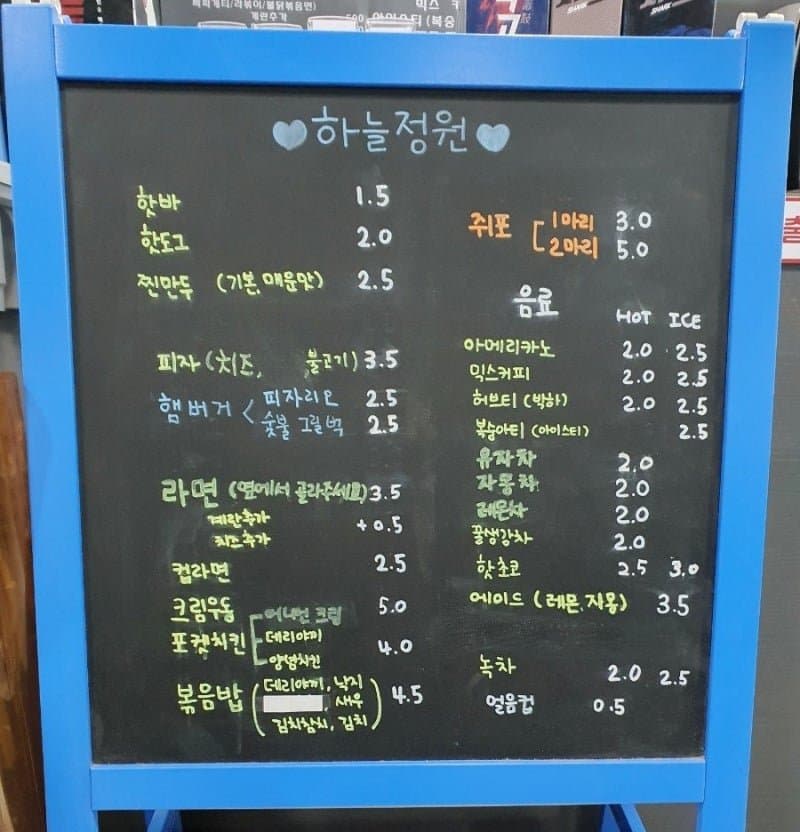 계란추가
하늘정원
핫바 1.5
핫도그 2.0
찐만두 (기본, 매운맛) 2.5
피자 (치즈, 불고기) 3.5
햄버거 < 피자리오 2.5
숯불 그릴벅 2.5
라면 (옆에서 골라주세요) 3.5
계란추가
치즈추가 +0.5
컵라면 2.5
크림우동 5.0
포켓치킨 어니언 크림
데리야끼 4.0
양념치킨
볶음밥 (데리야끼, 낙지 4.5
새우
김치참치, 김치)
쥐포 1마리 3.0
2마리 5.0
음료 HOT ICE
아메리카노 2.0 2.5
믹스커피 2.0 2.5
허브티 (박하) 2.0 2.5
복숭아티 (아이스티) 2.5
유자차 2.0
자몽차 2.0
레몬차 2.0
꿀생강차 2.0
핫초코 2.5 3.0
에이드 (레몬, 자몽) 3.5
녹차 2.0 2.5
얼음컵 0.5